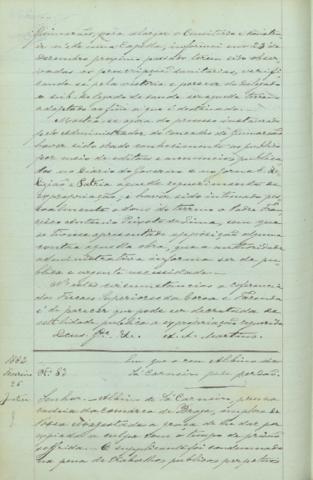 Guimarães, para alargar o Cemiterio e construir
n'elle uma Capella, informei em 23 de
Dezembro proximo passado terem sido obser-
vadas as prescripções sanitarias, verifi-
cando-se pela vistoria e parecer do Delegado
de Saude
adaptado ao fim a que é destinado.
Mostra-se agora do processo instaurado
pelo Administrador do Concelho de Guimarães
haver sido dado conhecimento ao publico
por meio de editaes e annuncios publica-
dos no Diario do Governo e no jornal Re-
ligião e Patria aquelle requerimento de
expropriação, e haver sido intimado pes-
soalmente o dono do terreno o Padre Fran-
cisco Antonio Peixoto de Lima, sem que
se tivesse apresentado opposição alguma
contra aquella obra, que a authoridade
administrativa informa ser de pu-
blica e urgente necessidade.
N'estas circumstancias a conferencia
dos Fiscaes Superiores da Coroa e Fazenda
é de parecer que pode ser decretada de
utilidade publica a expropriação requerida
Deus G.e &c. Martens
1862
Fevereiro
26
Justiça
N.º 82
Em que o reo Albino de
Sá Carneiro pede perdão.
Senhor. Albino de Sá Carneiro, preso na
cadeia da comarca de Braga, implora de
Vossa Magestade a graça de lhe dar por
expiada a culpa com o tempo de prisão
soffrida. O supplicante foi condemnado
na pena de trabalhos publicos perpetuos